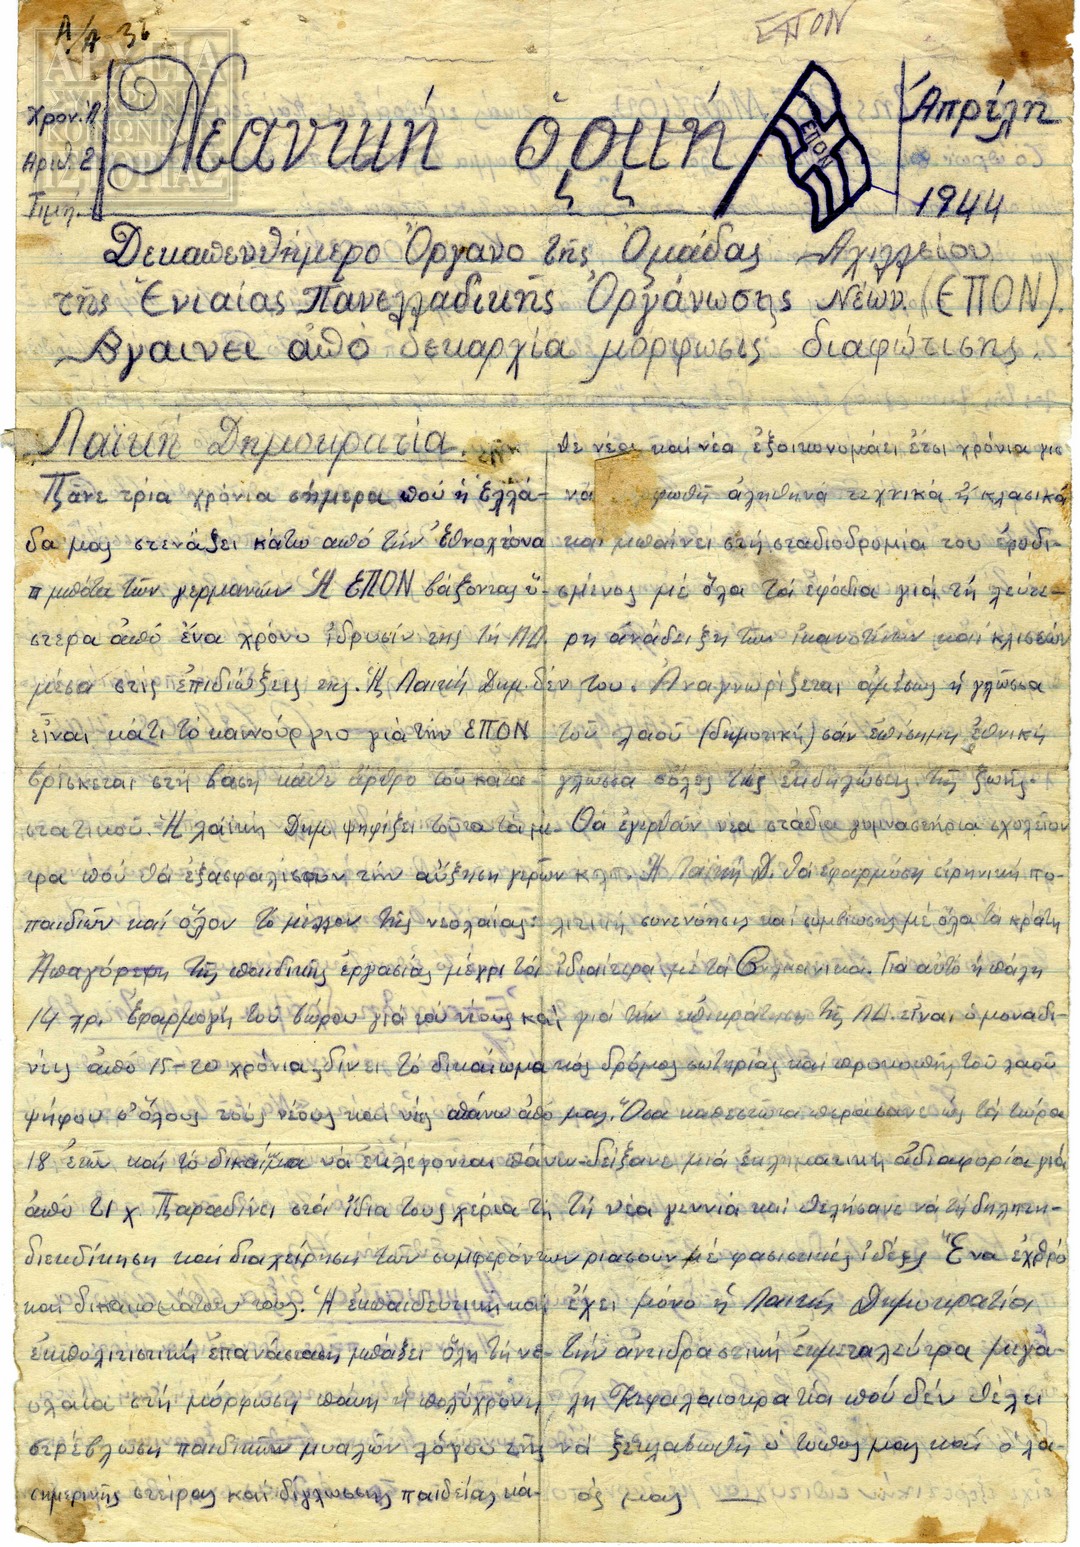 Α/Α 36
ΕΠΟΝ
ΑΡΧΕΙΑ
ΣΥΓΧΡΟΝΗΣ
ΚΟΙΝΩΝΙΚΗΣ
ΙΣΤΟΡΙΑΣ
Χρον. Α
Αριθ. 2
Τιμή.
Νεανική ὁρμή
ΕΠΟΝ
Ἀπρίλη
1944
Δεκαπενθήμερο Ὄργανο τῆς Ὁμάδας Αχιλλείου
τῆς Ἑνιαίας Πανελλαδικῆς Ὀργάνωσης Νέων (ΕΠΟΝ).
Βγαινει ἀπὸ δεκαρχία μόρφωσις διαφώτισης.
Λαϊκή Δημοκρατία.
Πᾶνε τρία χρόνια σήμερα πού ἡ Ἑλλά-
δα μας στενάζει κάτω από τήν
μπότα τῶν γερμανῶν Ἡ ΕΠΟΝ βάζοντας ὕ-
στερα ἀπό ἕνα χρόνο ἱδρυσίν της τή ΛΔ
μέσα στίς ἐπιδιώξεις της. Ἡ Λαική Δημ. δέν
εἶναι κάτι τό καινούργιο γιά τήν ΕΠΟΝ
βρίσκεται στή βάση κάθε ἄρθρο τοῦ κατα-
στατικοῦ. Ἡ λαϊκή Δημ. ψηφίζει τοῦτα τά μέ-
τρα πού θά ἐξασφαλίσουν τήν αὔξηση γερῶν
παιδιῶν καί ὅλον τό μέλλον τῆς νεολαίας:
Ἀπαγόρεψη τῆς παιδικῆς ἐργασίας μέχρι τά
14 χρ. Ἐφαρμογή του 6ώρου γιά τούς νέους καί
νές ἀπό 15-20 χρόνια, δίνει τό δικαίωμα
ψήφου σ' ὅλους τούς νέους καί νές απάνω ἀπό
18 ἐτῶν καί τό δικαίωμα νά ἐκλέγονται πάνω
ἀπό 21 χ. Παραδίνει στά ἴδια τους χέρια τή
διεκδίκηση καί διαχείρηση τῶν συμφερόντων
και δικαιωμάτων τους. Ἡ ἐκπαιδευτική καί
ἐκπολιτιστική ἐπανάσταση μπάζει ὅλη τή νε-
ολαία στή μόρφωση παύη ἡ πολύχρόνη
στρέβλωση παιδικῶν μυαλῶν λόγου τῆς
σημερινῆς στείρας καί δίγλωσσης παιδείας κά-
θε νέος καί νέα ἐξοικονομάει ἔτσι χρόνια γιά
νά ἀληθινά τεχνικά ἤ κλασικά
και μπαίνει στή σταδιοδρομία του ἐφοδι-
σμένος μέ ὅλα τά ἐφόδια γιά τή λεύτε-
ρη ἀνάδειξη τῶν ἱκανοτήτων καί κλισεών
του. Ἀναγνωρίζεται ἀμέσως ἡ γλῶσσα
τοῦ λαοῦ (δημοτική) σάν ἐπίσημη ἐθνική
γλῶσσα σ' ὅλες τίς ἐκδηλώσεις τῆς ζωῆς.
Θά ἐγερθοῦν νέα στάδια γυμναστήρια σχολεῖον
κλπ. Ἡ Λαϊκή Δ. θά ἐφαρμόση εἰρηνική πο-
λιτική συνενόησις καί συμβίωσης μέ ὅλα τά κράτη
ἰδιαίτερα μέ τά Βαλκανικά. Γιά αὐτό ἡ πάλη
γιά τήν επικράτιση τῆς ΛΔ. εἶναι ὁ μοναδι-
κός δρόμος σωτηρίας καί προκοπῆς τοῦ λαοῦ
μας. Ὅσα καθεστῶτα περάσανε ὡς τά τώρα
δείξανε μιά ἐκλημματική ἀδιαφορία γιά
τή νέα γεννιά καί θελήσανε νά τή δηλητη-
ριάσουν μέ φασιστικές ἰδέες Ἕνα ἐχθρό
ἔχει μόνο ἡ Λαική Δημοκρατία
τήν ἀντιδραστική ἐκμεταλεύτρα μεγά-
λη Κεφαλαιοκρατία πού δέν θέλει
νά ξεσκλαβωθῆ ὁ τόπος μας καί ὁ λα-
ός μας